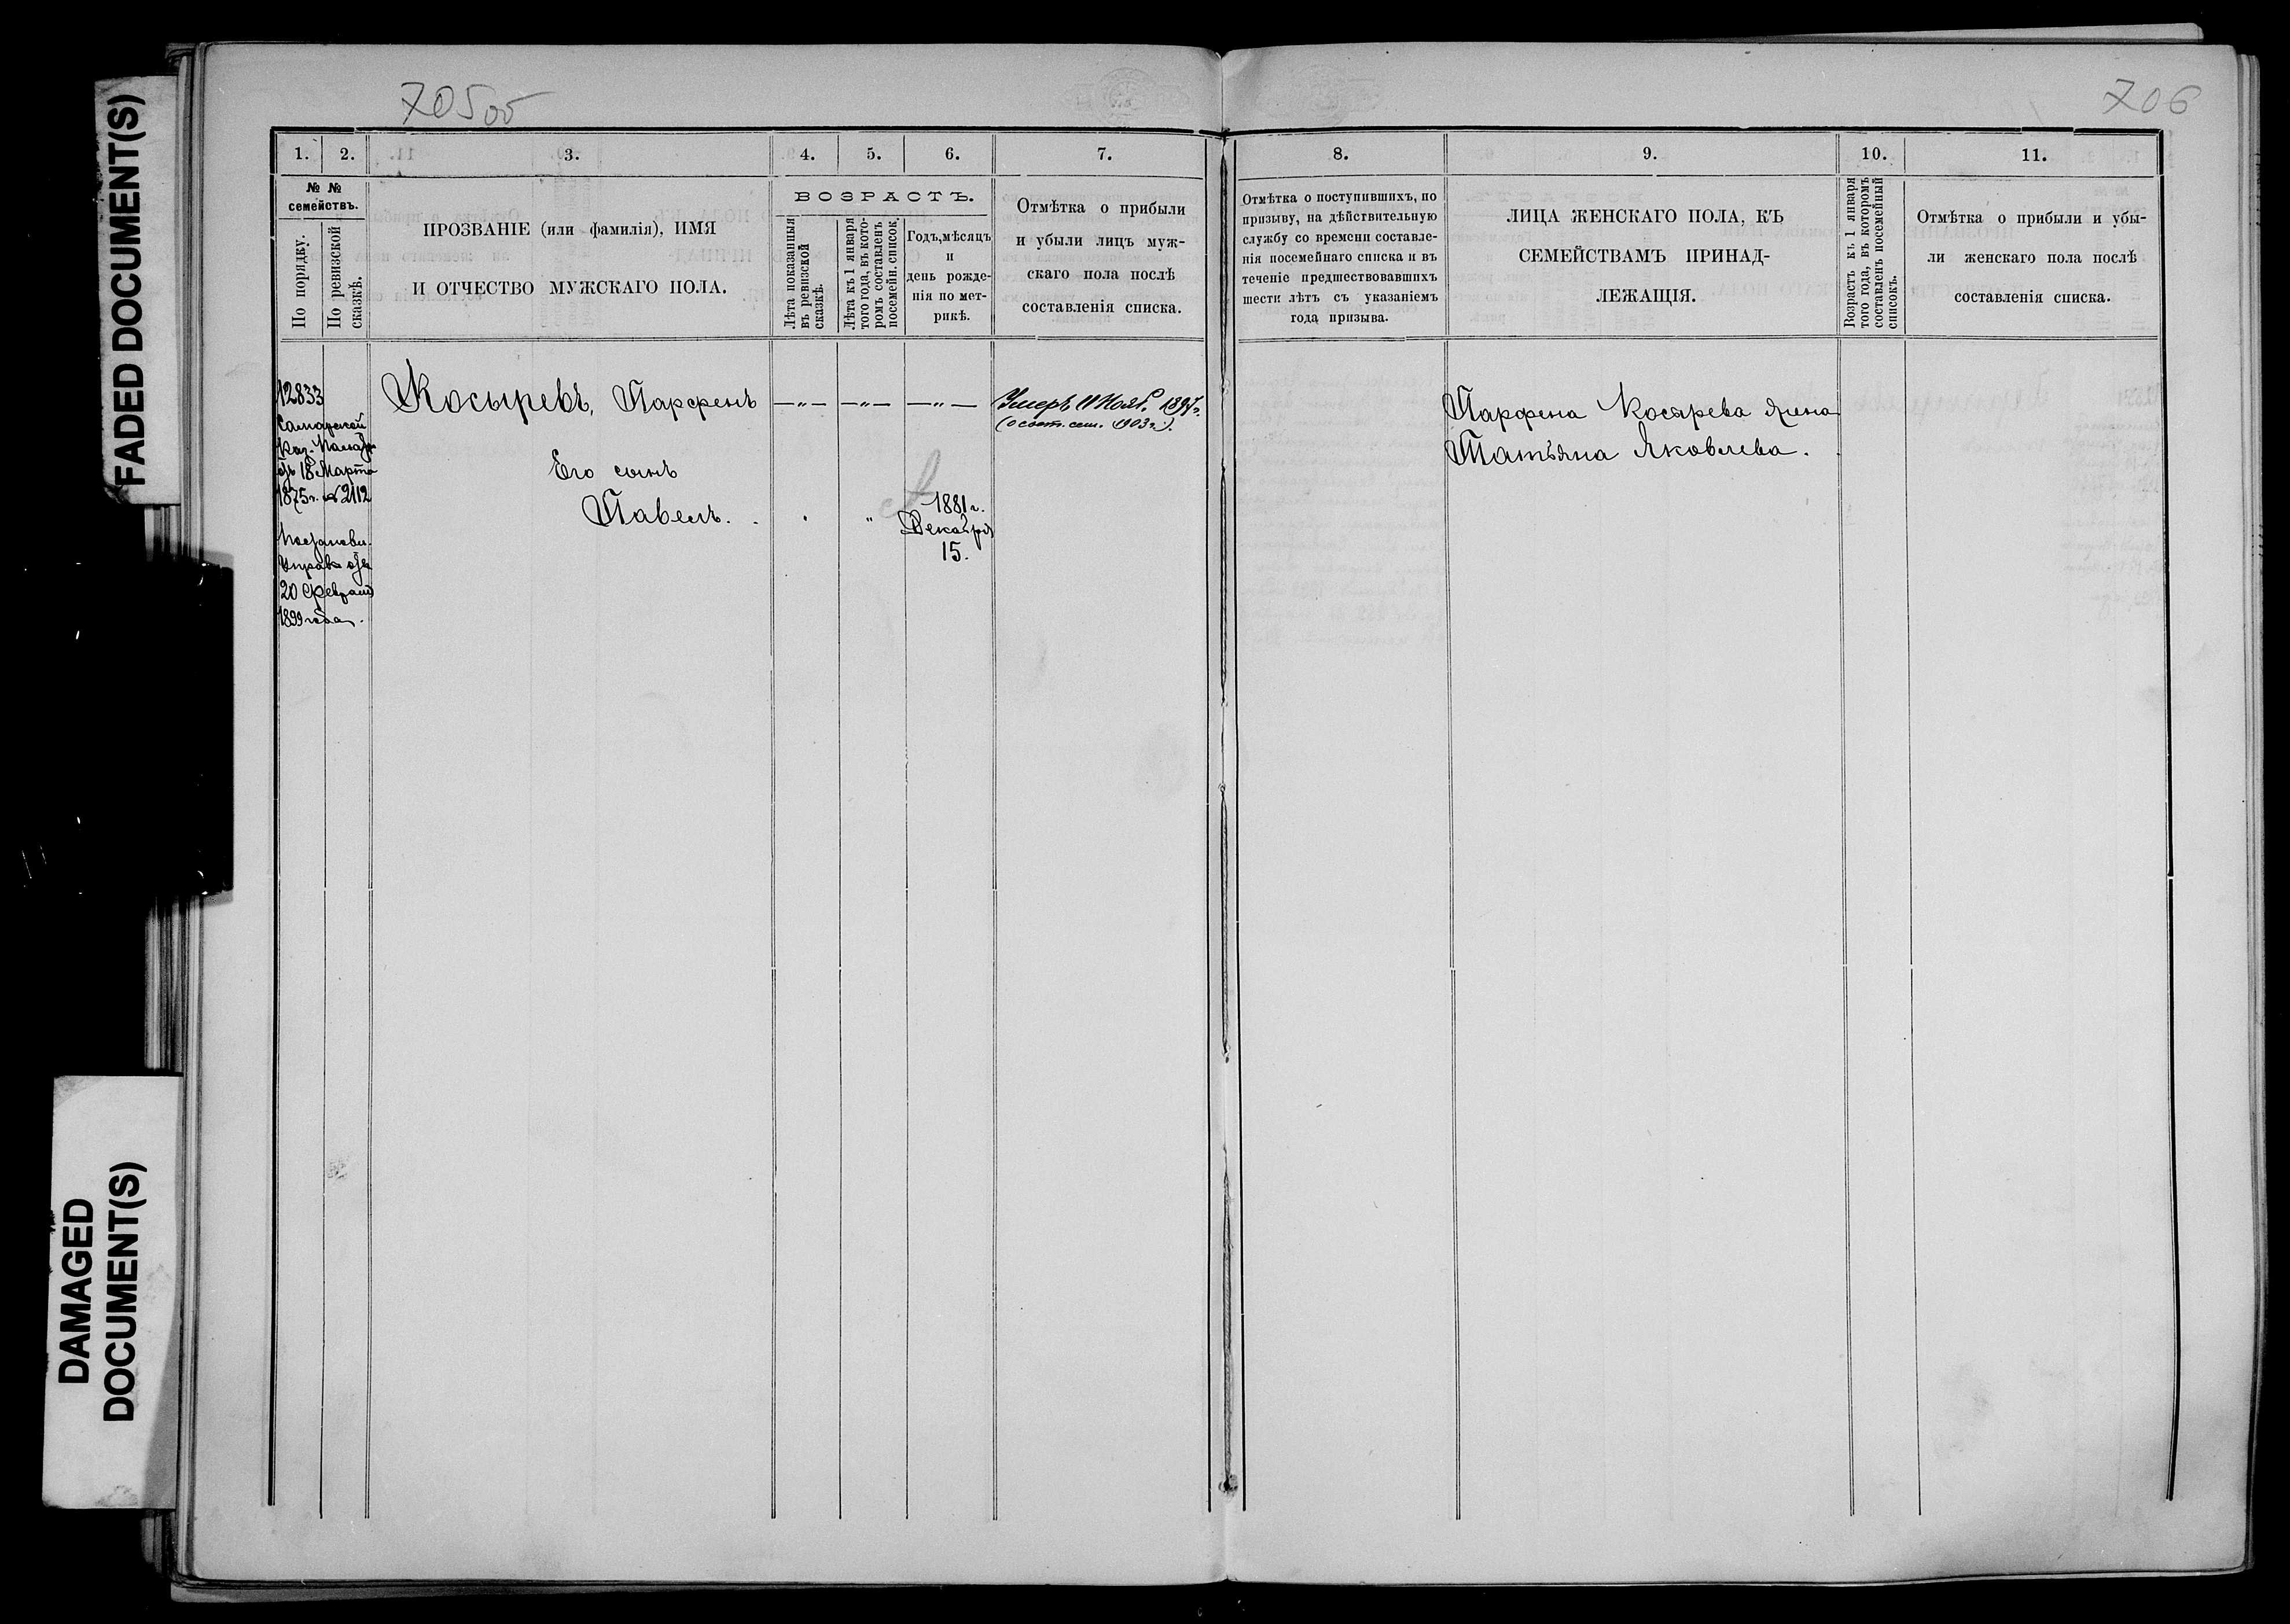 FADED DOCUMENT(S)
DAMAGED
DOCUMENT(S)
705об
706
1.
2.
3.
4.
5.
6.
7.
№ №
семействъ.
По порядку.
По ревизской
сказкѣ.
ПРОЗВАНІЕ (или фамилія), ИМЯ
И ОТЧЕСТВО МУЖСКАГО ПОЛА.
ВОЗРАСТЪ.
Лѣта показанныя
въ ревизской
сказкѣ.
Лѣта къ 1 января
того года, въ кото-
ромъ составленъ
посемейн. список.
Годъ, мѣсяцъ
и
день рожде-
нія по мет-
рикѣ.
Отмѣтка о прибыли
и убыли лицъ муж-
скаго пола послѣ
составленія списка.
12833
Самарской
Каз. Палаты
отъ 18 Марта
1875 г. № 2112
Постановл.
Управы отъ
20 Февраля
1899 года.
Косыревъ, Парфенъ
— „ — — „ — — „ —
Умеръ 11 Нояб. 1897 г.
(о сост. сем. 1903 г.).
Его сынъ
Павелъ. . . „
1881 г.
Декабря
15.
8.
9.
10.
11.
Отмѣтка о поступившихъ, по
призыву, на дѣйствительную
службу со времени составле-
нія посемейнаго списка и въ
теченіе предшествовавшихъ
шести лѣтъ съ указаніемъ
года призыва.
ЛИЦА ЖЕНСКАГО ПОЛА, КЪ
СЕМЕЙСТВАМЪ ПРИНАД-
ЛЕЖАЩІЯ.
Возрастъ къ 1 января
того года, въ которомъ
составленъ посемейный
списокъ.
Отмѣтка о прибыли и убы-
ли женскаго пола послѣ
составленія списка.
Парфена Косарева жена
Татьяна Яковлева.